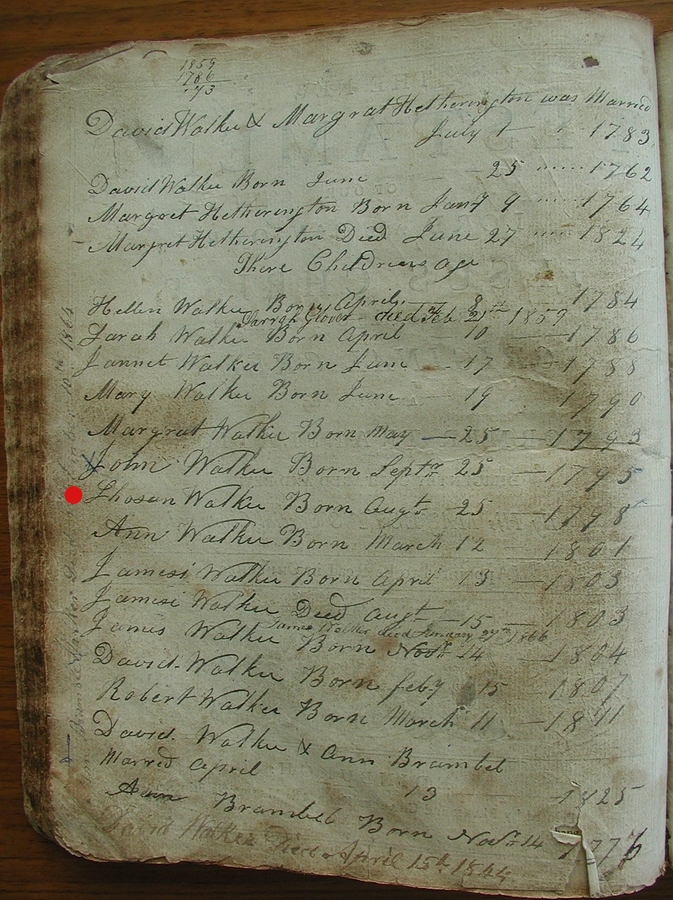 1859
1786
73
David Walker & Margrat Hetherington was Married
July 1 1783
David Walker Born June 25 1762
Margret Hetherington Born Janry 9 1764
Margret Hetherington Died June 27 1824
There Childrens age
Hellen Walker Born April 8 1784
Sarrah Glover died Feb 21st 1859
Sarah Walker Born April 10 1786
Jannet Walker Born June 17 1788
Mary Walker Born June 19 1790
Margrat Walker Born May 25 1793
John Walker Born Septr 25 1795
Shosan Walker Born Augt 25 1798
Ann Walker Born March 12 1801
James Walker Born April 13 1803
James Walker Died Augt 15 1803
James Walker died January 27th 1866
James Walker Born Novr 14 1804
David Walker Born feby 15 1807
Robert Walker Born March 11 1811
David Walker & Ann Brambel
Marred April 13 1825
Ann Brambel Born Novr 14 1776
David Walker Died April 15th 1864